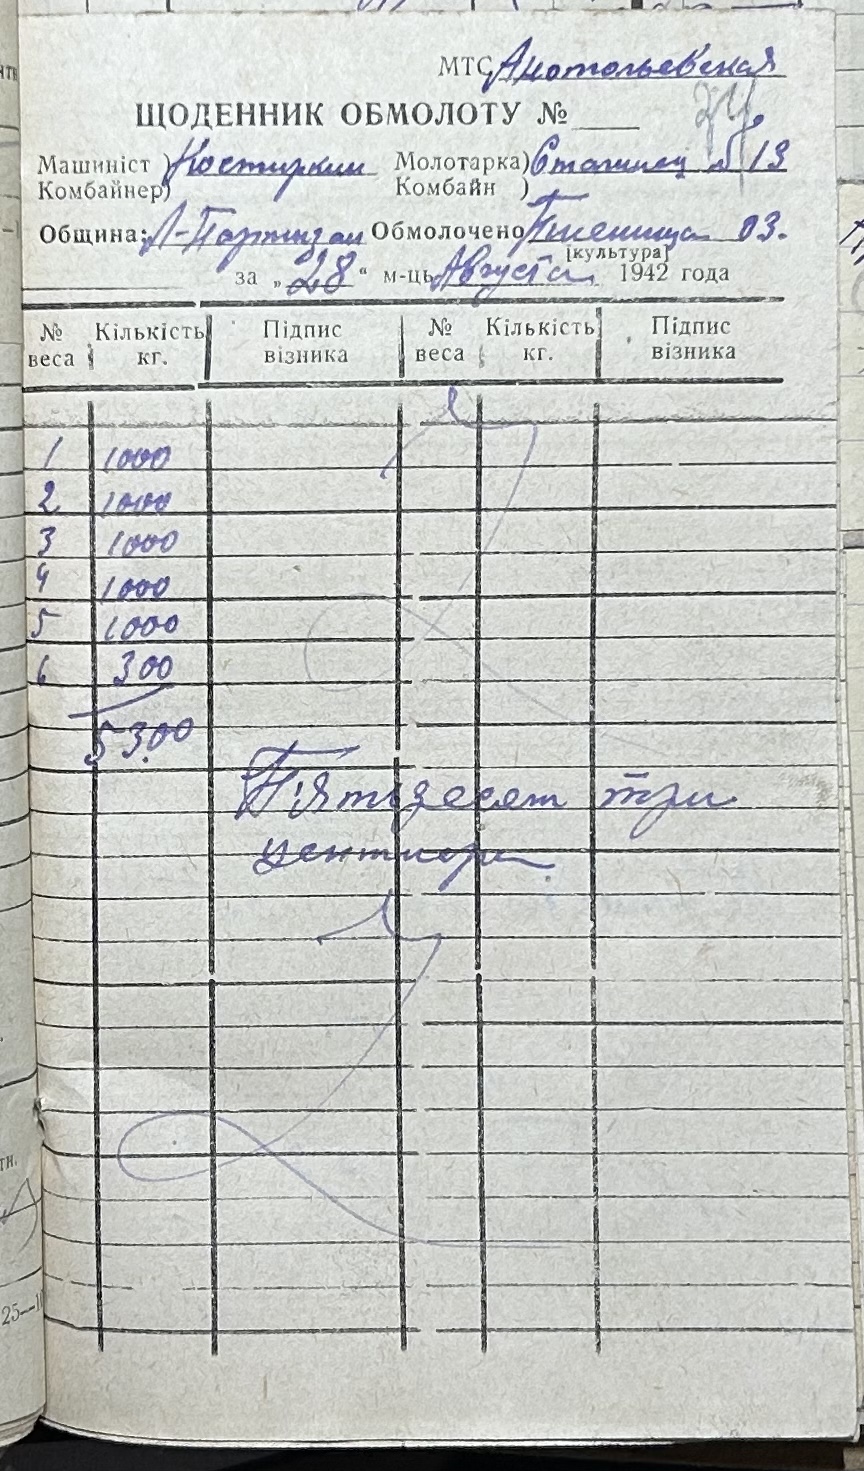 МТС Анатольевская
ЩОДЕННИК ОБМОЛОТУ №
24
Машиніст ) Костиркин Молотарка) Сталинец № 13
Комбайнер) Комбайн )
Община: Л-Партизан Обмолочено Пшеница 03.
[культура]
за „28“ м-ць Августа 1942 года
№ веса Кількість кг. Підпис візника № веса Кількість кг. Підпис візника
1 1000
2 1000
3 1000
4 1000
5 1000
6 300
5300
П'ятдесят три
центнера
25—